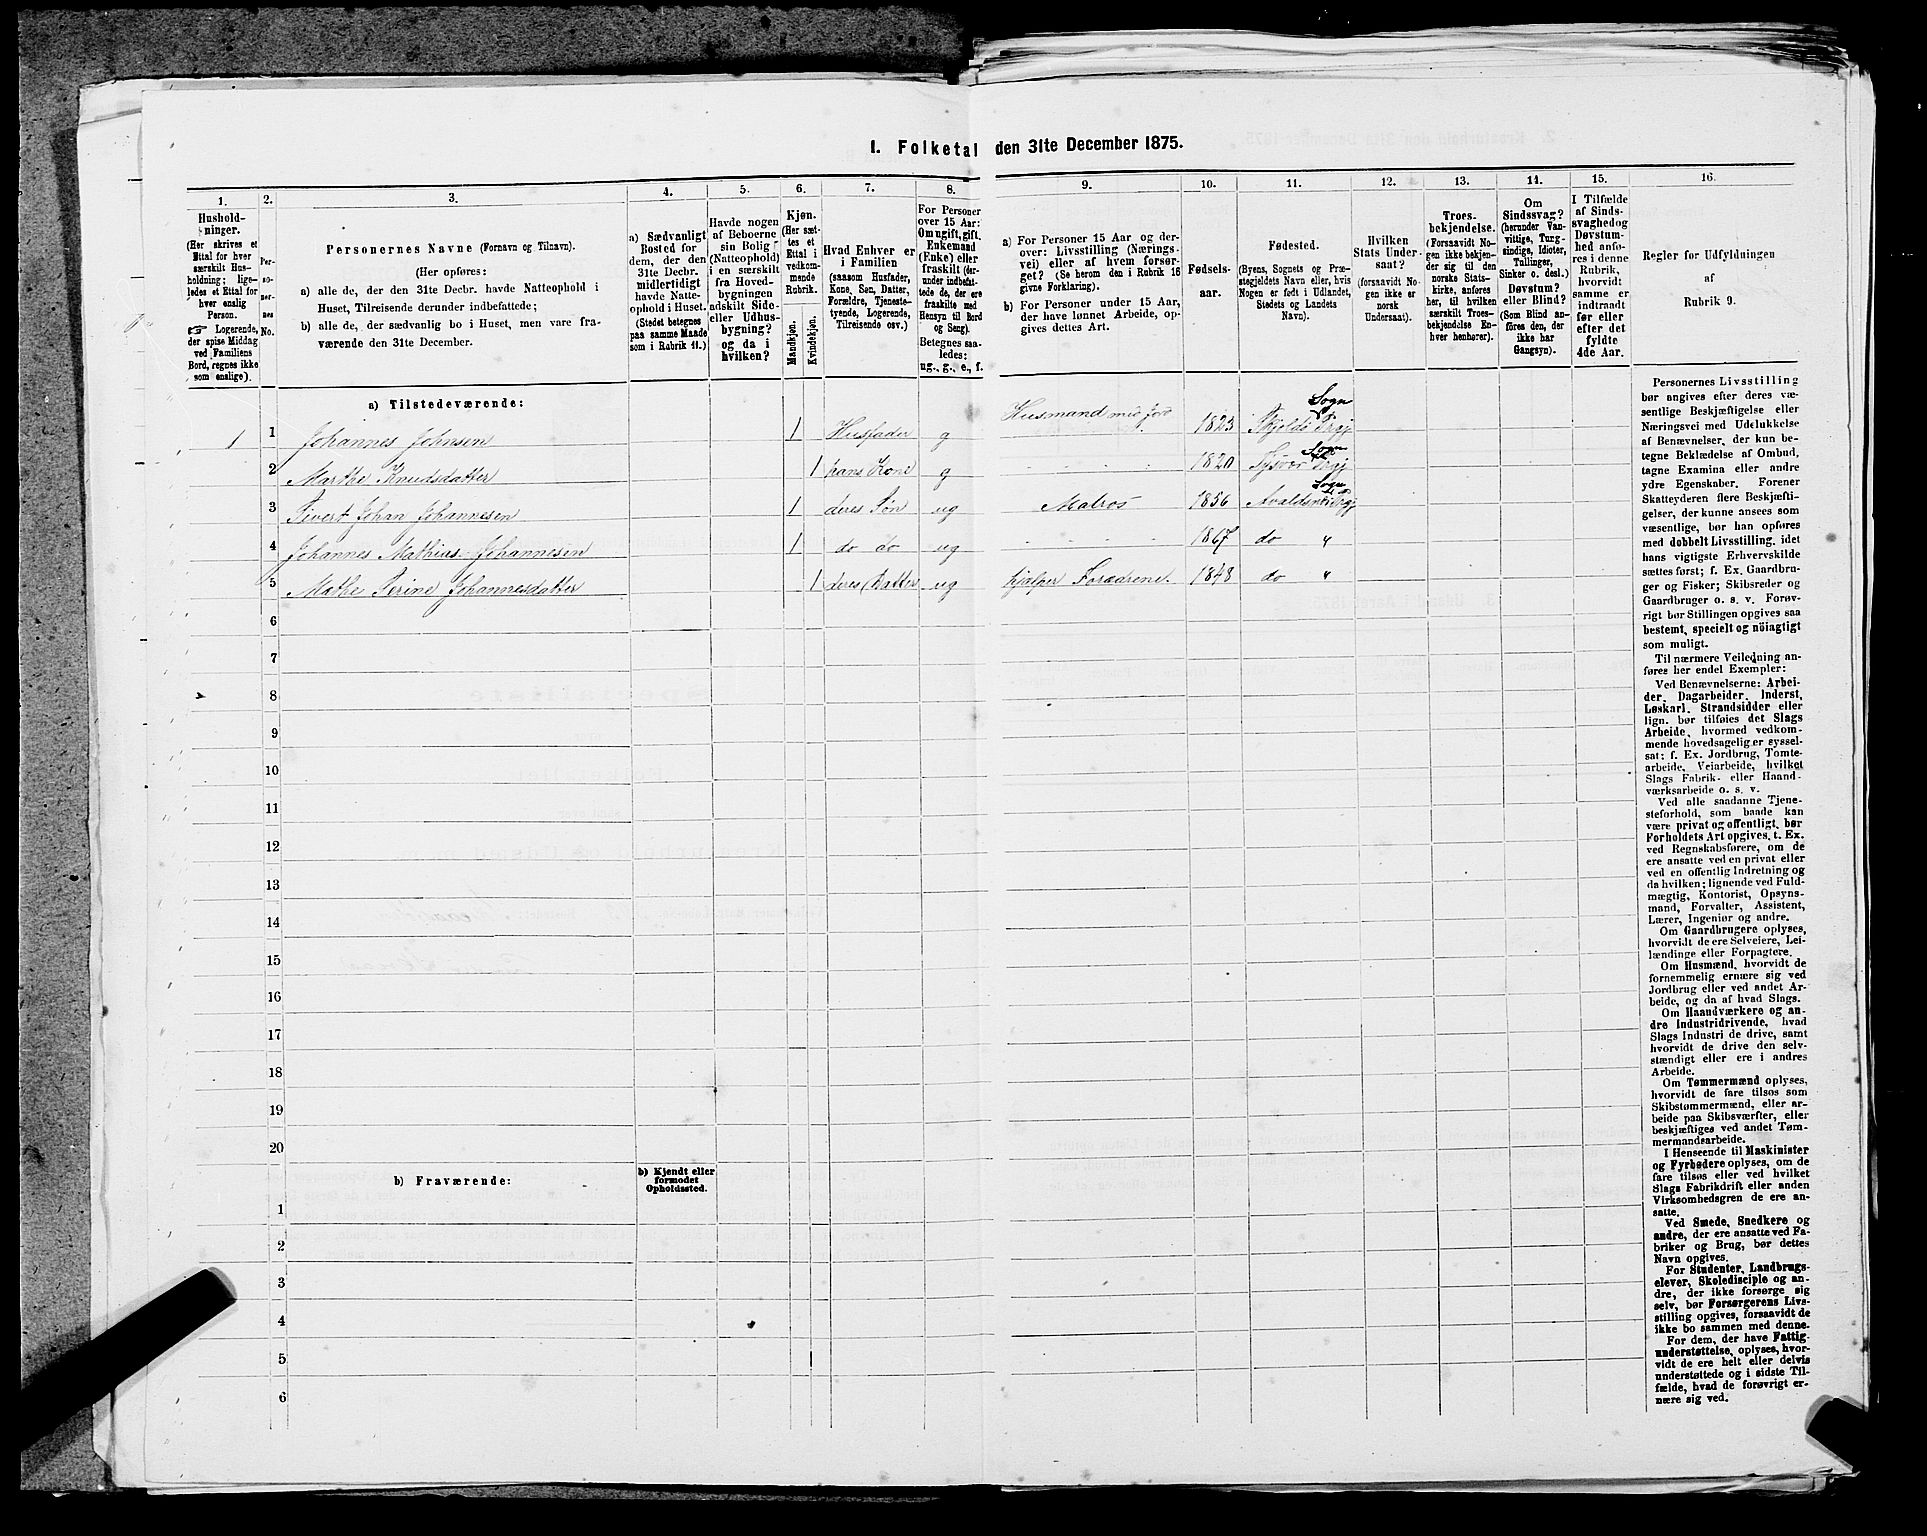 I. Folketal den 31te December 1875.
1.
2.
3.
4.
5.
6.
7.
8.
9.
10.
11.
12.
13.
14.
15.
16.
Hushold-
ninger.
(Her skrives et
Ettal for hver
særskilt Hus-
holdning; lige-
ledes et Ettal for
hver enslig
Person.
☞ Logerende,
der spise Middag
ved Familiens
Bord, regnes ikke
som enslige).
Per-
so-
ner-
nes
No.
Personernes Navne (Fornavn og Tilnavn).
(Her opføres:
a) alle de, der den 31te Decbr. havde Natteophold i
Huset, Tilreisende derunder indbefattede;
b) alle de, der sædvanlig bo i Huset, men vare fra-
værende den 31te December.
a) Sædvanligt
Bosted for
dem, der den
31te Decbr.
midlertidigt
havde Natte-
ophold i Huset.
(Stedet betegnes
paa samme Maade
som i Rubrik 11.)
Havde nogen
af Beboerne
sin Bolig
(Natteophold)
i en særskilt
fra Hoved-
bygningen
adskilt Side-
eller Udhus-
bygning?
og da i
hvilken?
Kjøn.
(Her sæt-
tes et
Ettal i
vedkom-
mende
Rubrik.
Mandkjøn.
Kvindekjøn.
Hvad Enhver er
i Familien
(saasom Husfader,
Kone, Søn, Datter,
Forældre, Tjeneste-
tyende, Logerende,
Tilreisende osv.)
For Personer
over 15 Aar:
Om ugift, gift,
Enkemand
(Enke) eller
fraskilt (der-
under indbefat-
tede de, der ere
fraskilte med
Hensyn til Bord
og Seng).
Betegnes saa-
ledes:
ug., g., e., f.
a) For Personer 15 Aar og der-
over: Livsstilling (Nærings-
vei) eller af hvem forsør-
get? (Se herom den i Rubrik 16
givne Forklaring).
b) For Personer under 15 Aar,
der have lønnet Arbeide, op-
gives dettes Art.
Fødsels-
aar.
Fødested.
(Byens, Sognets og Præ-
stegjeldets Navn eller, hvis
Nogen er født i Udlandet,
Stedets og Landets
Navn).
Hvilken
Stats Under-
saat?
(forsaavidt No-
gen ikke er
norsk
Undersaat).
Troes-
bekjendelse.
(Forsaavidt No-
gen ikke bekjen-
der sig til den
norske Stats-
kirke, anføres
her, til hvilken
særskilt Troes-
bekjendelse En-
hver henhører).
Om
Sindssvag?
(herunder Van-
vittige, Tung-
sindige, Idioter,
Tullinger,
Sinker o. desl.)
Døvstum?
eller Blind?
(Som Blind an-
føres den, der
ikke har
Gangsyn).
I Tilfælde
af Sinds-
svaghed og
Døvstum-
hed anfø-
res i denne
Rubrik,
hvorvidt
samme er
indtraadt
før eller
efter det
fyldte
4de Aar.
Regler for Udfyldningen
af
Rubrik 9.
a) Tilstedeværende:
1 1 Johannes Johnsen 1 Husfader g Husmand med Jord 1823 Skjolde Sogn Prgj
2 Marthe Knudsdatter 1 hans Kone g 1820 Tysvær Sogn Prgj
3 Sivert Johan Johannesen 1 deres Søn ug Matros 1856 Avaldsnes Sogn Prgj
4 Johannes Mathius Johannesen 1 do do ug 1867 do "
5 Mathe Serine Johannesdatter 1 deres Datter ug hjælper Forældrene. 1848 do "
6
7
8
9
10
11
12
13
14
15
16
17
18
19
20
b) Fraværende:
b) Kjendt eller
formodet
Opholdssted.
1
2
3
4
5
6
Personernes Livsstilling
bør angives efter deres væ-
sentlige Beskjæftigelse eller
Næringsvei med Udelukkelse
af Benævnelser, der kun be-
tegne Beklædelse af Ombud,
tagne Examina eller andre
ydre Egenskaber. Forener
Skatteyderen flere Beskjæfti-
gelser, der kunne ansees som
væsentlige, bør han opføres
med dobbelt Livsstilling, idet
hans vigtigste Erhvervskilde
sættes først; f. Ex. Gaardbru-
ger og Fisker; Skibsreder og
Gaardbruger o. s. v. Forøv-
rigt bør Stillingen opgives saa
bestemt, specielt og nøiagtigt
som muligt.
Til nærmere Veiledning an-
føres her endel Exempler:
Ved Benævnelserne: Arbei-
der, Dagarbeider, Inderst,
Løskarl, Strandsidder eller
lign. bør tilføies det Slags
Arbeide, hvormed vedkom-
mende hovedsagelig er syssel-
sat; f. Ex. Jordbrug, Tomte-
arbeide, Veiarbeide, hvilket
Slags Fabrik- eller Haand-
værksarbeide o. s. v.
Ved alle saadanne Tjene-
steforhold, som baade kan
være privat og offentligt, bør
Forholdets Art opgives, t. Ex.
ved Regnskabsførere, om de
ere ansatte ved en privat eller
ved en offentlig Indretning og
da hvilken; lignende ved Fuld-
mægtig, Kontorist, Opsyns-
mand, Forvalter, Assistent,
Lærer, Ingeniør og andre.
Om Gaardbrugere oplyses,
hvorvidt de ere Selveiere, Lei-
lændinge eller Forpagtere.
Om Husmænd, hvorvidt de
fornemmelig ernære sig ved
Jordbrug eller ved andet Ar-
beide, og da af hvad Slags.
Om Haandværkere og an-
dre Industridrivende, hvad
Slags Industri de drive, samt
hvorvidt de drive den selv-
stændigt eller ere i andres
Arbeide.
Om Tømmermænd oplyses,
hvorvidt de fare tilsøs som
Skibstømmermænd, eller ar-
beide paa Skibsværfter, eller
beskjæftiges ved andet Tøm-
mermandsarbeide.
I Henseende til Maskinister
og Fyrbødere oplyses, om de
fare tilsøs eller ved hvilket
Slags Fabrikdrift eller anden
Virksomhedsgren de ere an-
satte.
Ved Smede, Snedkere og
andre, der ere ansatte ved Fa-
briker og Brug, bør dettes
Navn opgives.
For Studenter, Landbrugs-
elever, Skoledisciple og an-
dre, der ikke forsørge sig
selv, bør Forsørgerens Livs-
stilling opgives, forsaavidt de
ikke bo sammen med denne.
For dem, der have Fattig-
understøttelse, oplyses, hvor-
vidt de ere helt eller delvis
understøttede og i sidste Til-
fælde, hvad de forøvrigt er-
nære sig ved.